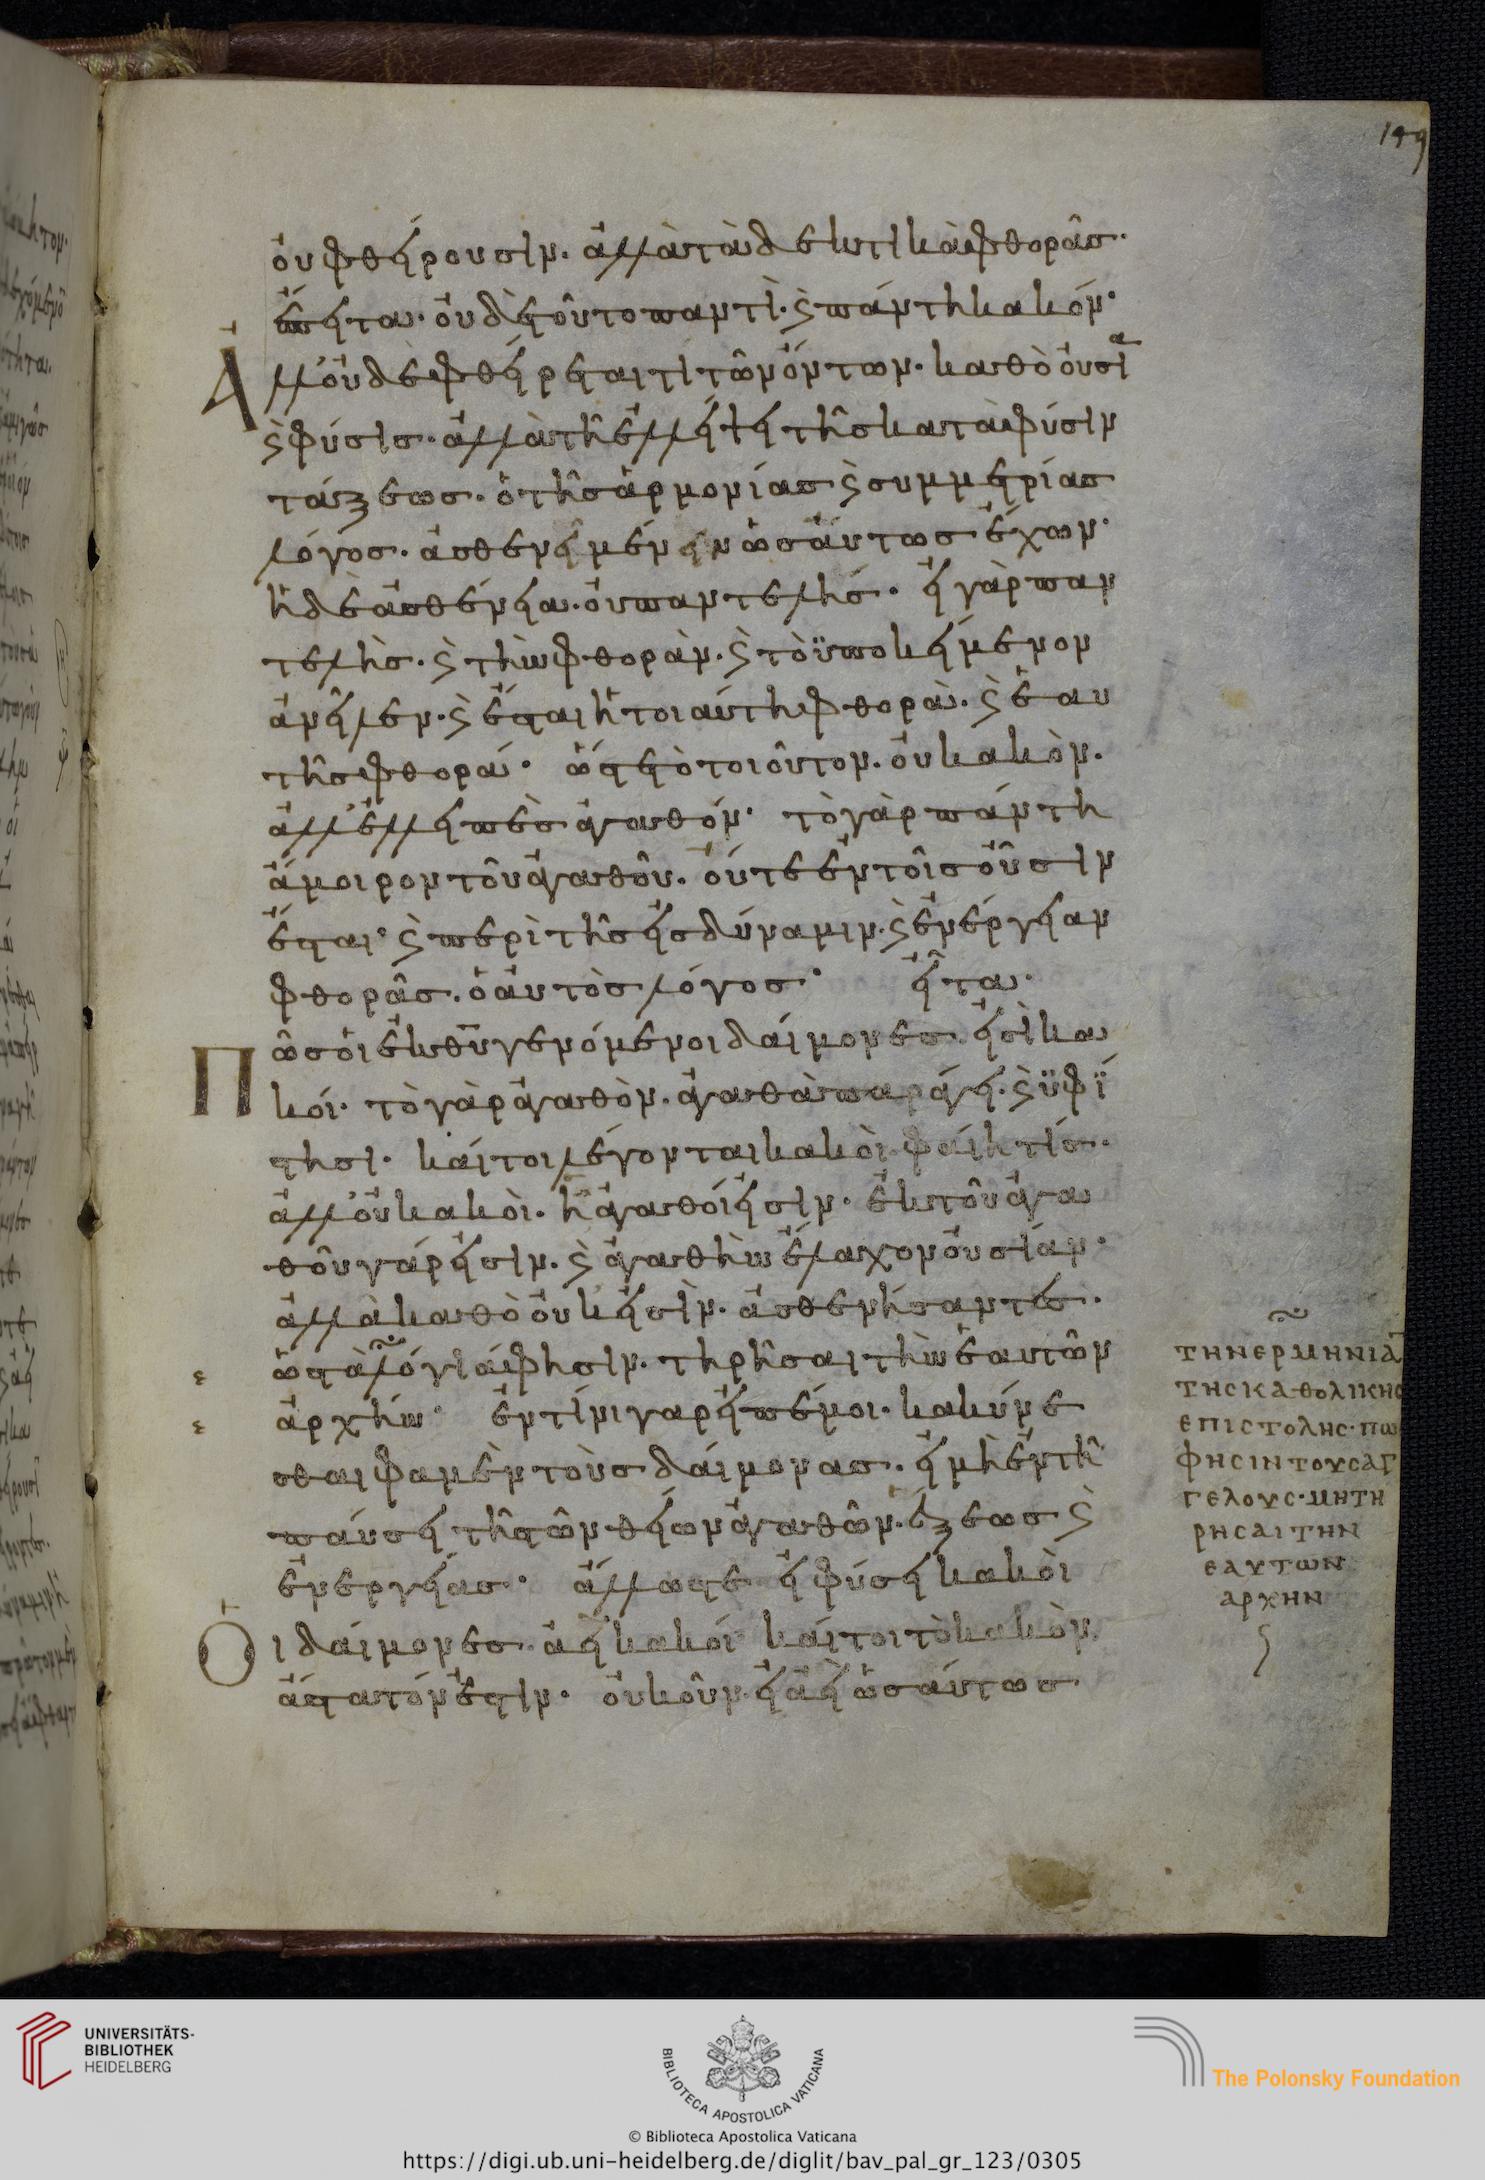 149
οὐ φθείρουσιν. ἀλλὰ τὰ δεκτικὰ φθορᾶς.
ἔπειτα. οὐδὲ τοῦτο παντὶ. ϛ πάντη κακόν·
Ἀλλ' οὐδὲ φθείρεταί τι τῶν ὄντων. καθὸ οὐσία
ϛ φύσις. ἀλλὰ τῆ ἐλλείψει τῆς κατὰ φύσιν
τάξεως. ὁ τῆς ἁρμονίας ϛ συμμετρίας
λόγος. ἀσθενεῖ μένειν ὡσαύτως ἔχων·
ἡ δὲ ἀσθένεια. οὐ παντελής. εἰ γὰρ παν
τελὴς. ϛ τὴν φθορὰν. ϛ τὸ ϋποκείμενον
ἀνεῖλεν. ϛ ἔσται ἡ τοιαύτη φθορὰ. ϛ ἑαυ
τῆς φθορά· ὥστε τὸ τοιοῦτον. οὐ κακὸν.
ἀλλ' ἐλλειπὲς ἀγαθόν· τὸ γὰρ πάντη
ἄμοιρον τοῦ ἀγαθοῦ. οὔτε ἐν τοῖς οὖσιν
ἔσται· ϛ περὶ τῆς εἰς δύναμιν. ϛ ἐνέργειαν
φθορᾶς. ὁ αὐτὸς λόγος· εἶτα.
Πῶς οἱ ἐκ θυ γενόμενοι δαίμονες. εἰσὶ κα
κοί· τὸ γὰρ ἀγαθὸν. ἀγαθὰ παράγει. ϛ ϋφί
στησι· καίτοι λέγονται κακοὶ φαίη τίς.
ἀλλ' οὐ κακοὶ. ἢ ἀγαθοί εἰσιν· ἐκ τοῦ ἀγα
θοῦ γάρ εἰσιν. ϛ ἀγαθὴν ἔλαχον οὐσίαν·
ἀλλὰ καθὸ οὐκ εἰσὶν. ἀσθενήσαντες.
ὡς τὰ λόγιά φησιν. τηρῆσαι τὴν ἑαυτῶν
ἀρχήν· ἐν τίνι γαρ εἰπέ μοι. κακύνε
σθαι φαμὲν τοὺς δαίμονας. εἰ μὴ ἐν τῆ
παύσει τῆ τῶν θείων ἀγαθῶν. ἕξεως ϛ
ἐνεργείας· ἄλλως τε εἰ φύσει κακοὶ
Οἱ δαίμονες. ἀεὶ κακοί· καίτοι τὸ κακὸν
ἄστατόν ἐστιν· οὐκοῦν εἰ ἀεὶ ὡσαύτως
ΤΗΝ ΕΡΜΗΝΙΑ
ΤΗΣ ΚΑΘΟΛΙΚΗΣ
ΕΠΙΣΤΟΛΗΣ· ΠΩ
ΦΗΣΙΝ ΤΟΥΣ ΑΓ
ΓΕΛΟΥΣ· ΜΗ ΤΗ
ΡΗΣΑΙ ΤΗΝ
ΕΑΥΤΩΝ
ΑΡΧΗΝ
UNIVERSITÄTS-
BIBLIOTHEK
HEIDELBERG
BIBLIOTECA APOSTOLICA VATICANA
The Polonsky Foundation
© Biblioteca Apostolica Vaticana
https://digi.ub.uni-heidelberg.de/diglit/bav_pal_gr_123/0305